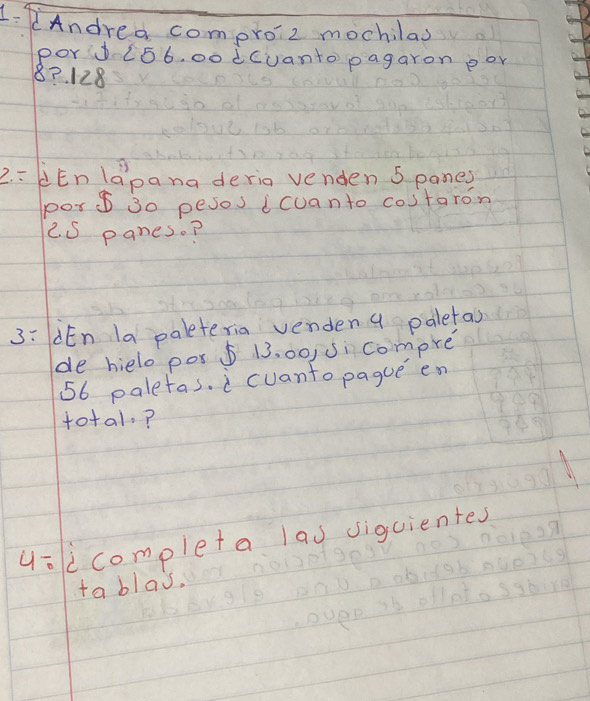 1-¿Andrea compró 2 mochilas
por $ 256.00 ¿cuanto pagaron por
8?.128
2.-¿En la pana deria venden 5 panes
por $ 30 pesos ¿cuanto costarón
25 panes.?
3-¿En la paleteria venden 4 paletas
de hielo por $ 13.00, si compré
56 paletas. ¿cuanto pagué en
total.?
4-¿completa las siguientes
tablas.